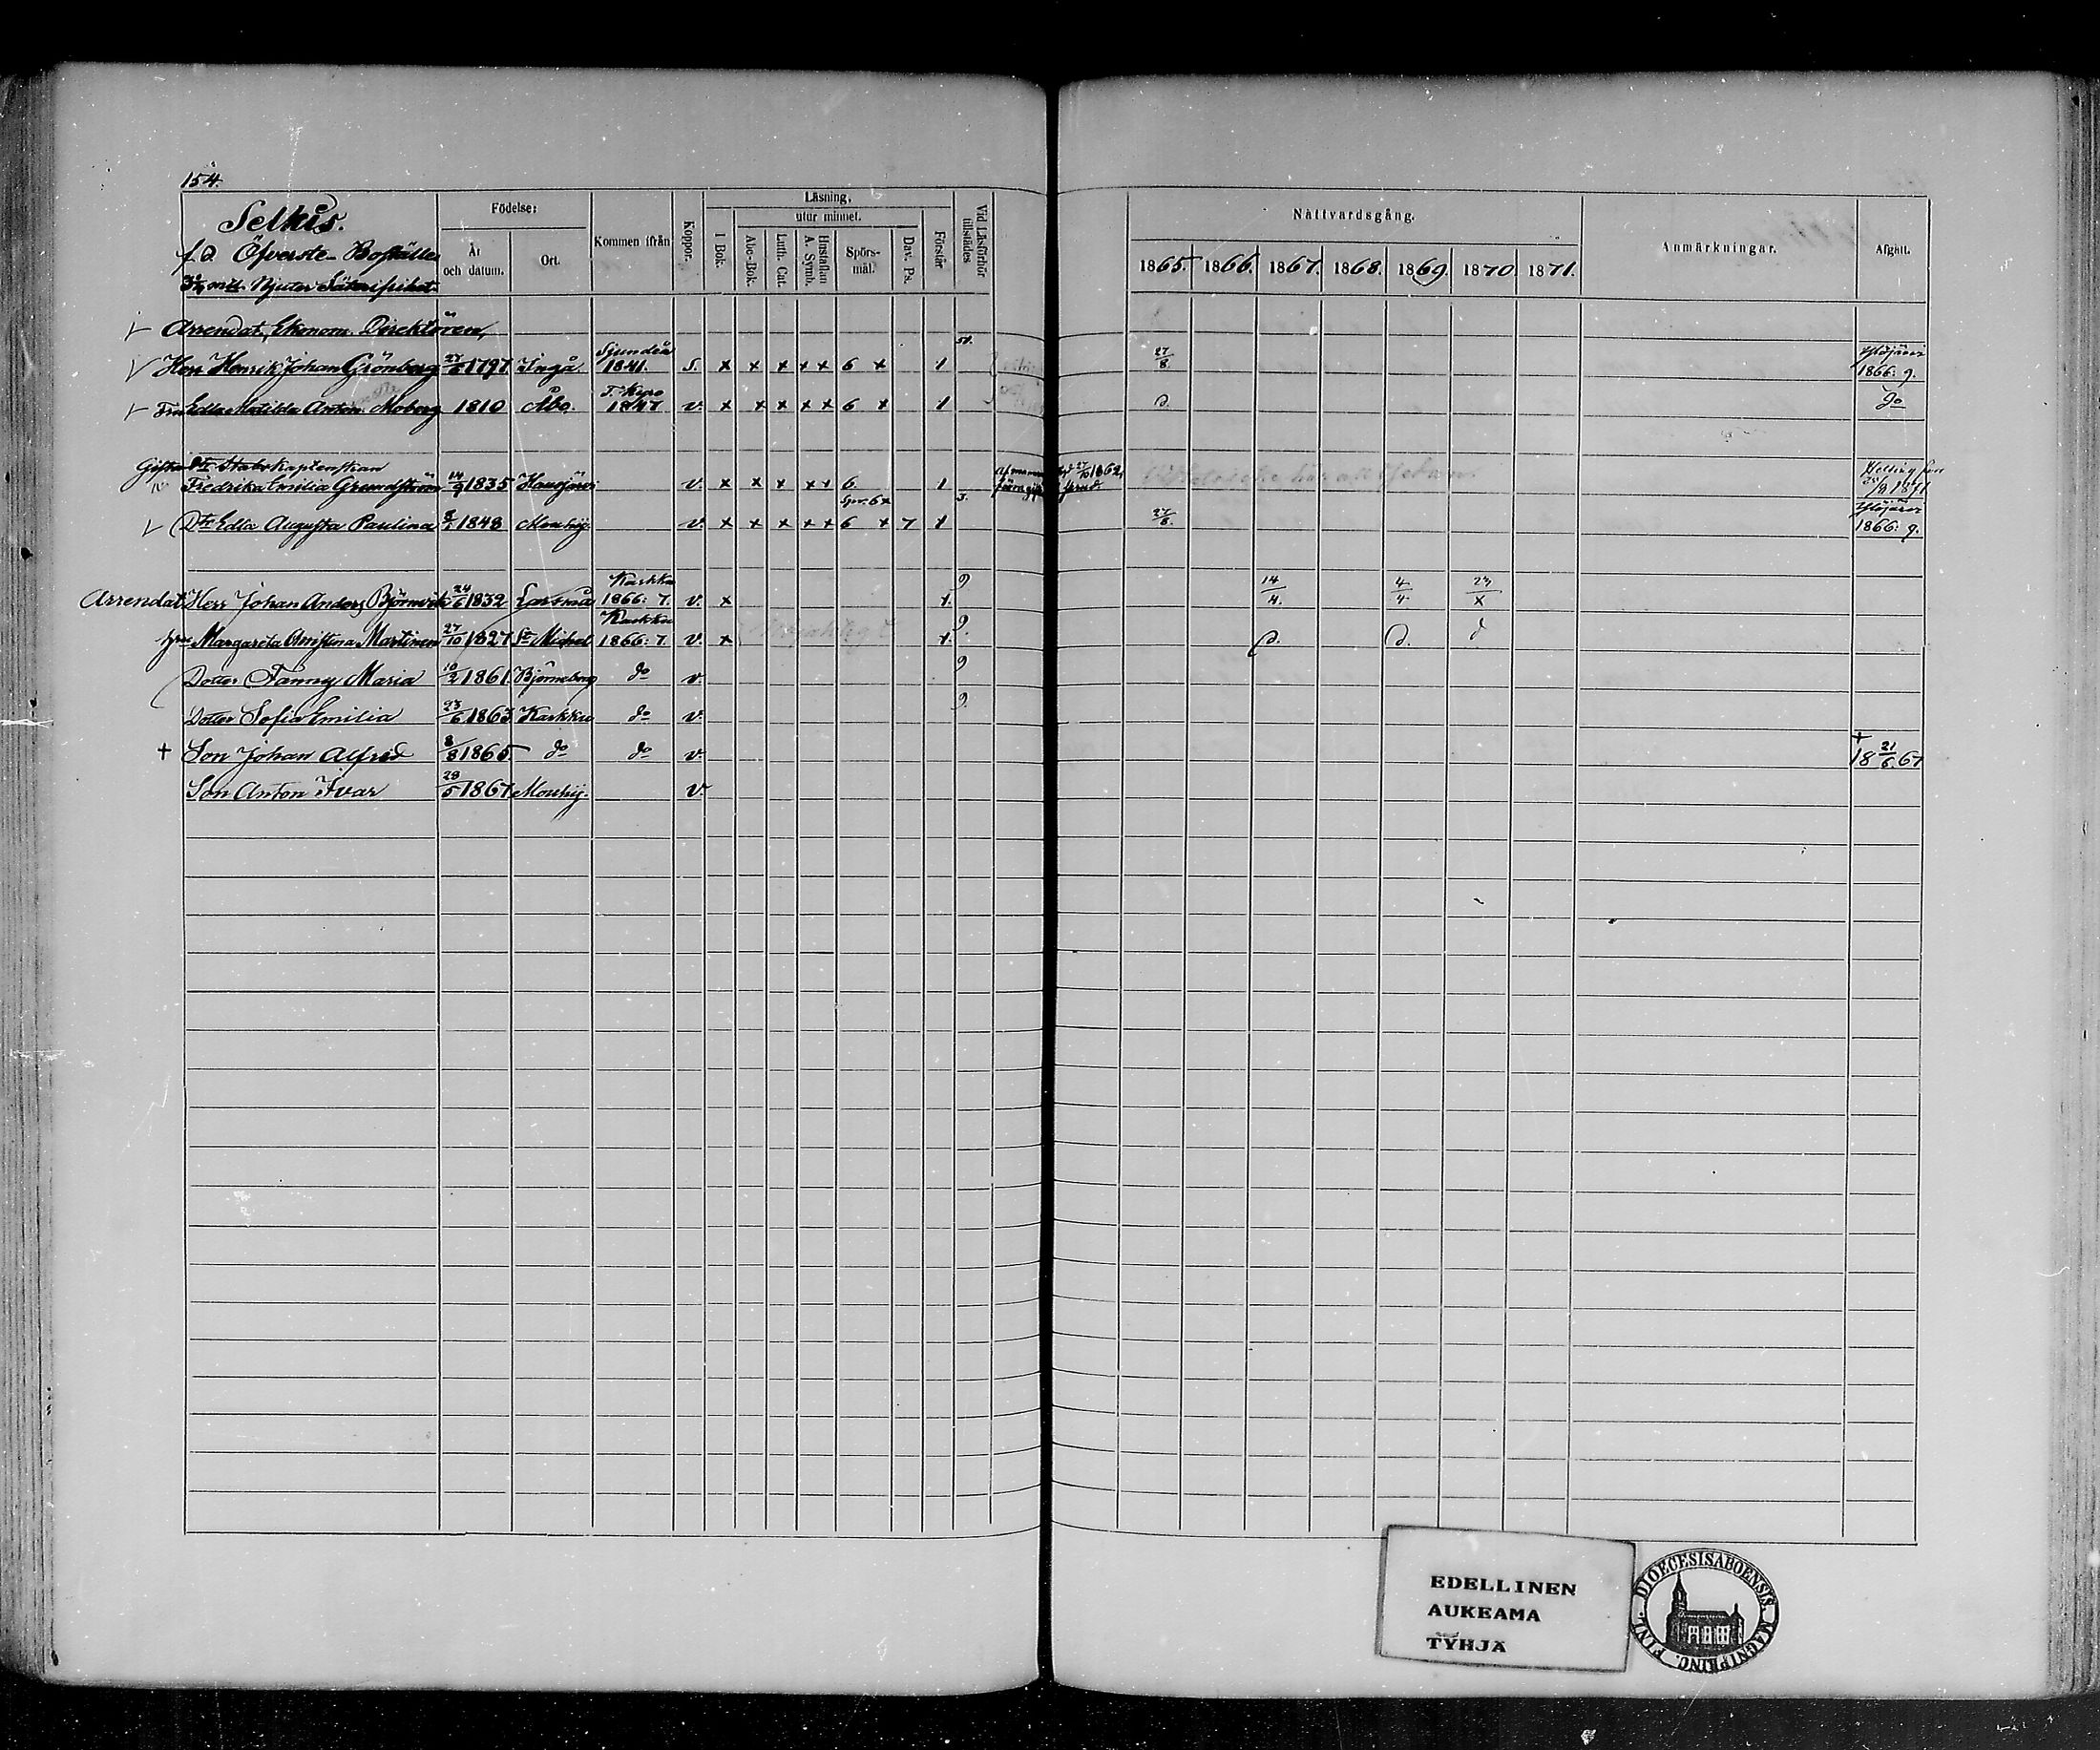 154.
Selkis.
f.d. Öfverste-Boställe
3/4 mtl. Njuter Säterifrihet.
Födelse:
År och datum.
Ort.
Kommen ifrån
Koppor.
Läsning,
utur minnet.
I Bok.
Abc-Bok.
Luth. Cat.
Hustaflan A. Symb.
Spörs-mål.
Dav. Ps.
Förstår
Vid Läsförhör tillstädes
Nattvardsgång.
1865. 1866. 1867. 1868. 1869. 1870. 1871.
Anmärkningar.
Afgått.
Arrendat, Ekonom. Direktören,
Herr Henrik Johan Grönberg 27/5 1797. Ingå Sjundeå 1841. S. x x x x x 6 x 1 27/8 Ylöjärvi 1866: 9.
Fru Edla Matilda Anton. Moberg 1810 Åbo. 1847 v. x x x x x 6 x 1 d. do
Gifta Dtr Stabskaptenskan
Fredrika Emilia Grundström 14/9 1835 Hausjärvi v. x x x x x 6. 1 3. 27/10 1862, 1871
Dtr Edla Augusta Paulina 1848 Mouhij. v. x x x x x 6 x 7 1 27/8. Ylöjärvi 1866: 9.
Arrendat. Herr Johan Anders 24/6 1832 Larsmå Karkku 1866: 7. v. x 1. 9 14/4. 4/4. 23/X
Margareta Christina Martinen 27/10 1827. St Michel Karkku 1866: 7. v. x 1. 9. d. d. d
Dotter Fanny Maria 10/2 1861. Björneborg do v. 9
Dotter Sofia Emilia 23/6 1863. Karkku do v. 9.
+ Son Johan Alfred 8/8 1865. do do v. + 18 21/6. 67
Son Anton Ivar 28/5 1867. Mouhij. v.
EDELLINEN
AUKEAMA
TYHJÄ
DIOECESIS ABOENSIS. MAGNI PRINC. FINL.